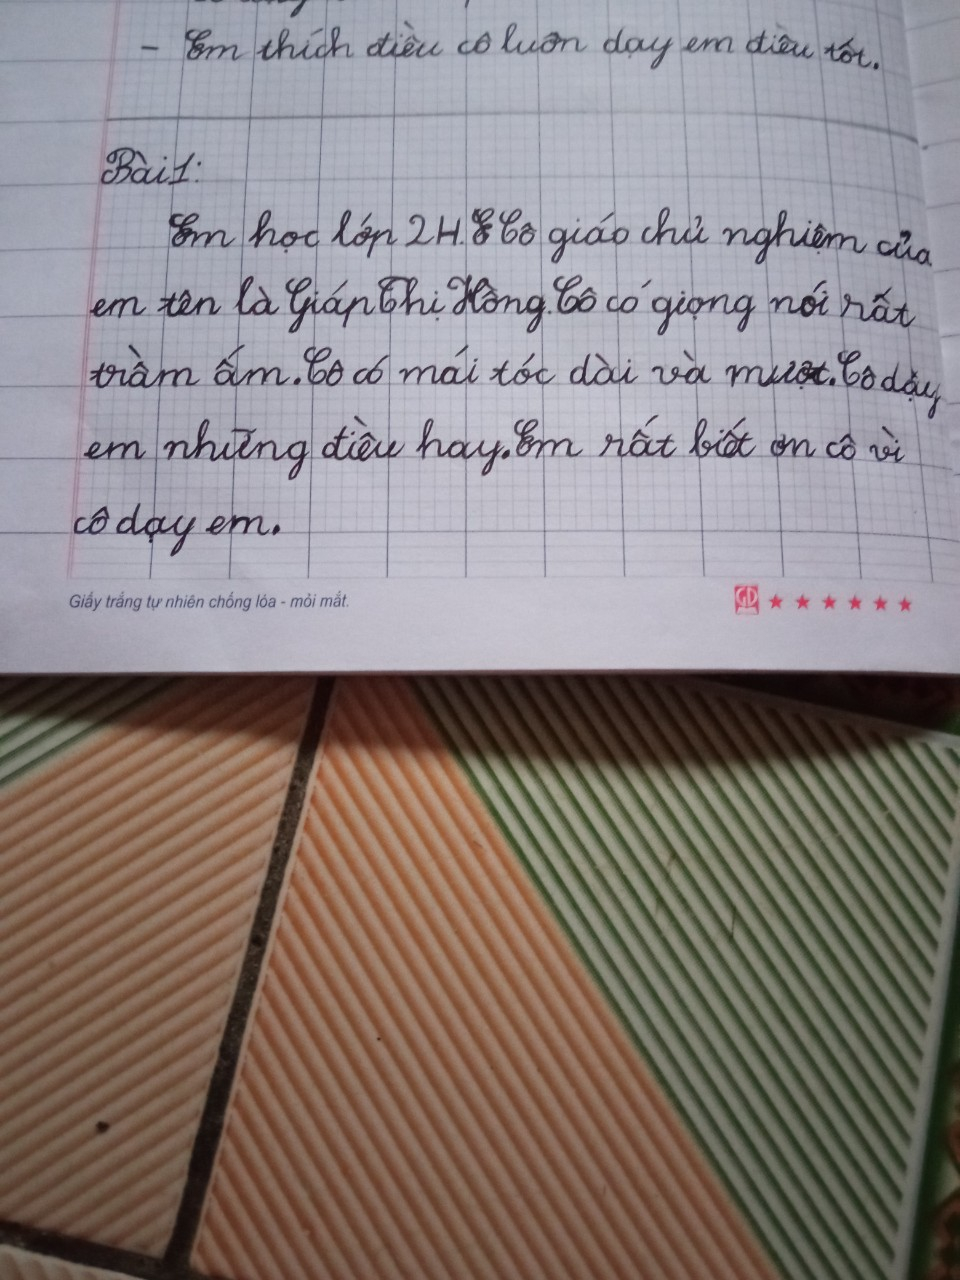 - Em thích điều cô luôn dạy em điều tốt.
Bài 1:
Em học lớp 2H. Cô giáo chủ nghiệm của
em tên là Giáp Thị Hồng. Cô có giọng nói rất
trầm ấm. Cô có mái tóc dài và mượt. Cô dạy
em những điều hay. Em rất biết ơn cô vì
cô dạy em.
Giấy trắng tự nhiên chống lóa - mỏi mắt.
GD